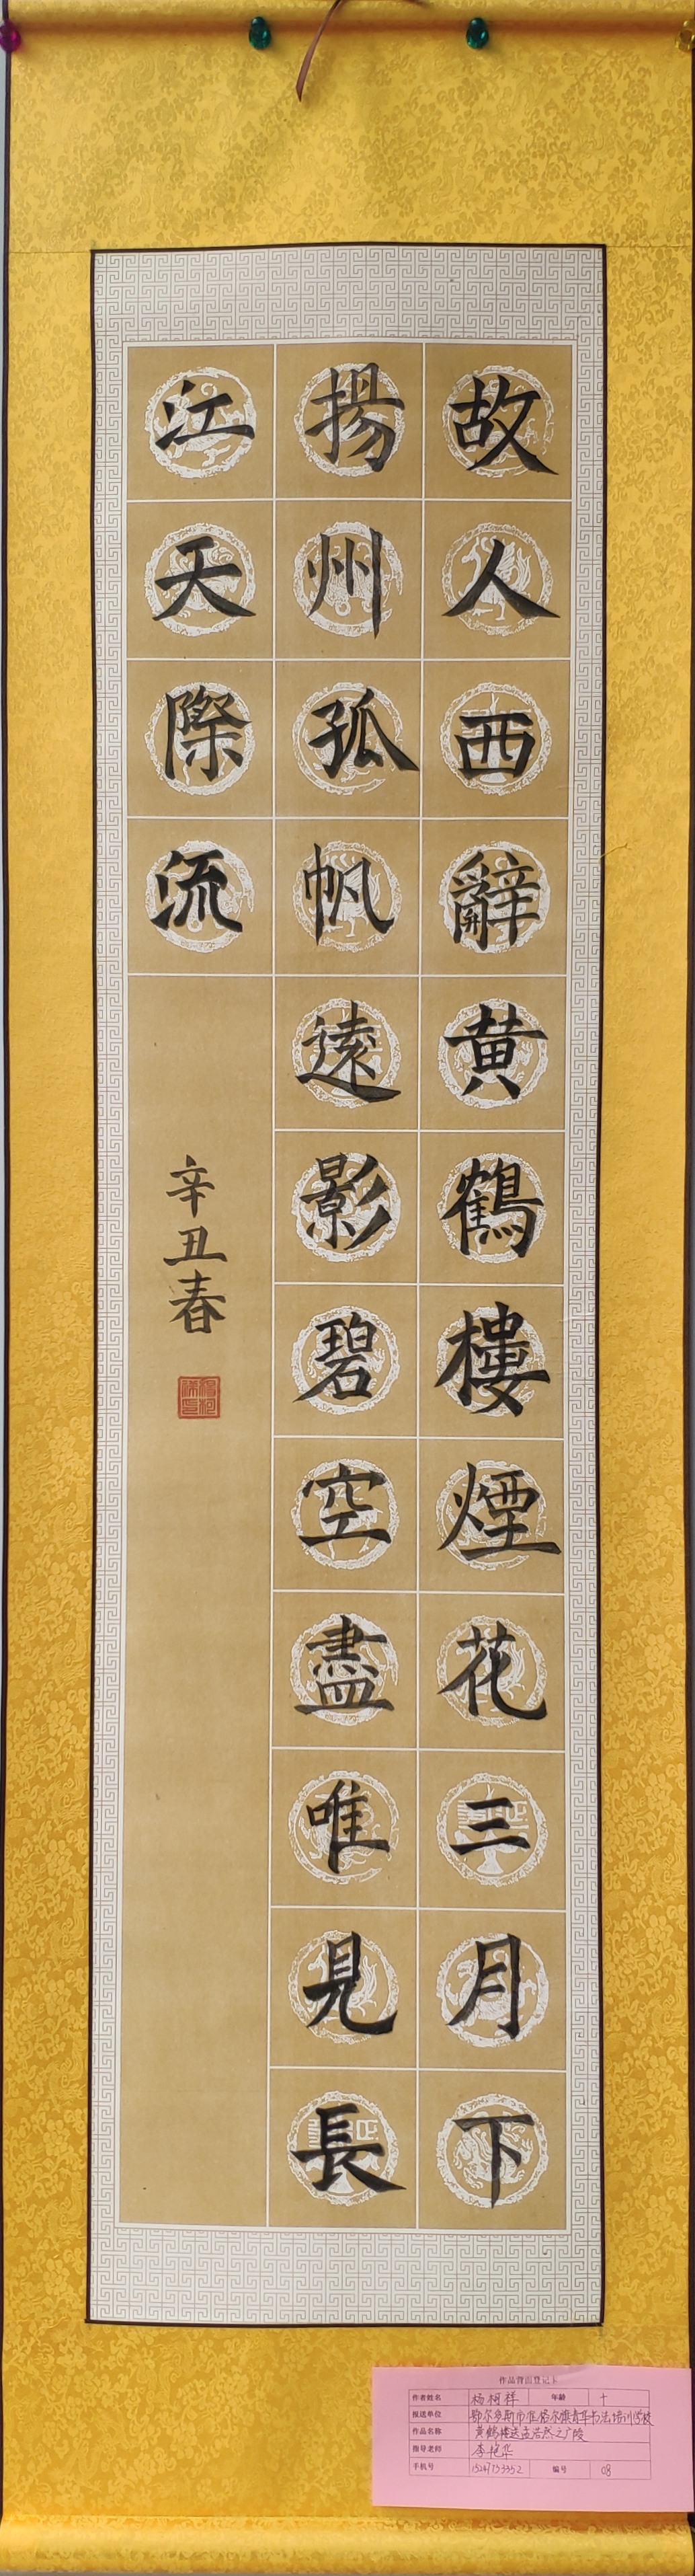 故人西辭黄鶴樓煙花三月下
揚州孤帆遠影碧空盡唯見長
江天際流
辛丑春
作品背面登记卡
作者姓名 杨柯祥 年龄 十
报送单位 鄂尔多斯市准格尔旗青华书法培训学校
作品名称 黄鹤楼送孟浩然之广陵
指导老师 李艳华
手机号 编号 08